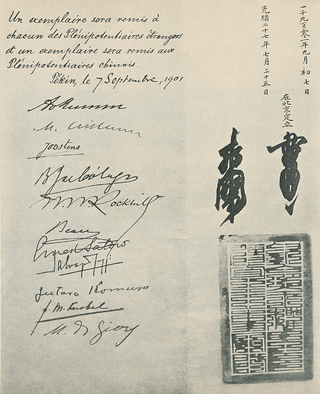 Un exemplaire sera remis à
chacun des Plénipotentiaires Etrangers
et un exemplaire sera remis aux
Plénipotentiaires chinois.
Pékin, le 7 Septembre, 1901
A v Mumm
M. Czikann
Joostens
B J de Cólogan
W W Rockhill
Beau
Ernest Satow
Salvago Raggi
Jutaro Komura
F. M. Knobel
M. de Giers
一千九百零一年九月初七
光緒二十七年七月二十五日
在北京定立